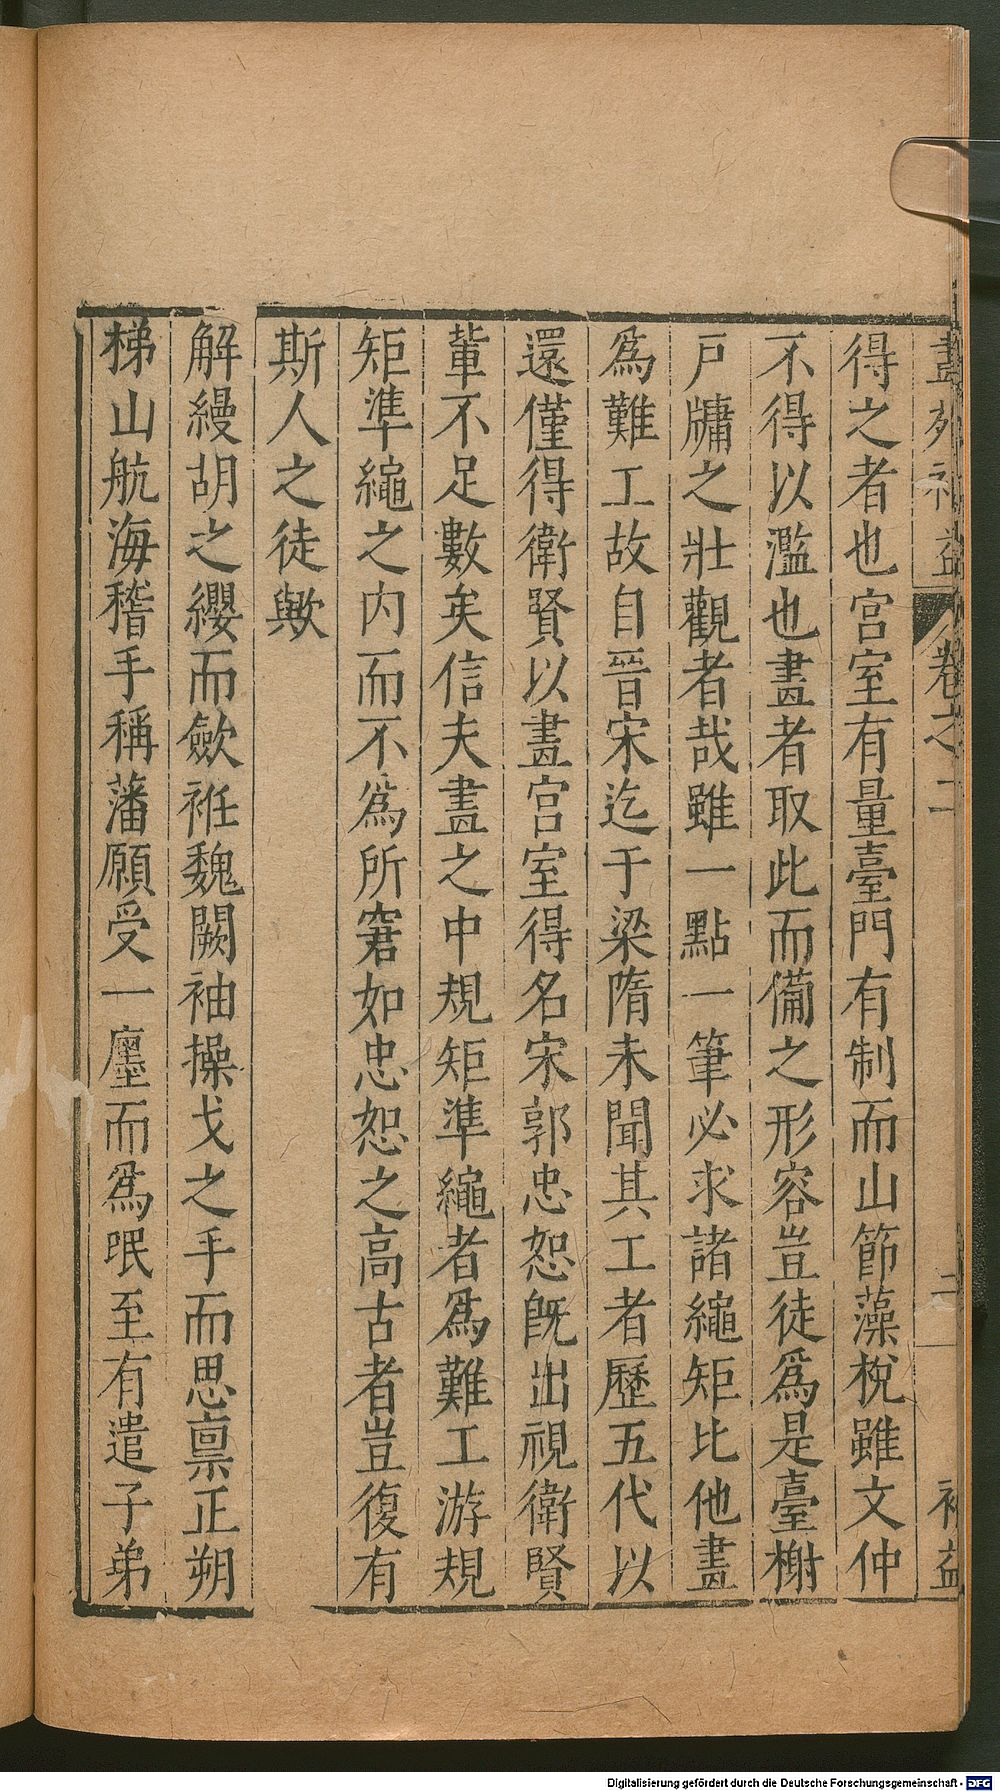 畫苑補益 卷之二 二 補益
得之者也宫室有量臺門有制而山節藻梲雖文仲
不得以濫也畫者取此而備之形容豈徒爲是臺榭
戸牖之壯觀者哉雖一點一筆必求諸繩矩比他畫
爲難工故自晉宋迄于梁隋未聞其工者歷五代以
還僅得衛賢以畫宫室得名宋郭忠恕旣出視衛賢
輩不足數矣信夫畫之中規矩準繩者爲難工游規
矩準繩之内而不爲所窘如忠恕之高古者豈復有
斯人之徒歟
解縵胡之纓而歛袵魏闕袖操戈之手而思禀正朔
梯山航海稽手稱藩願受一廛而爲氓至有遣子弟
Digitalisierung gefördert durch die Deutsche Forschungsgemeinschaft - DFG